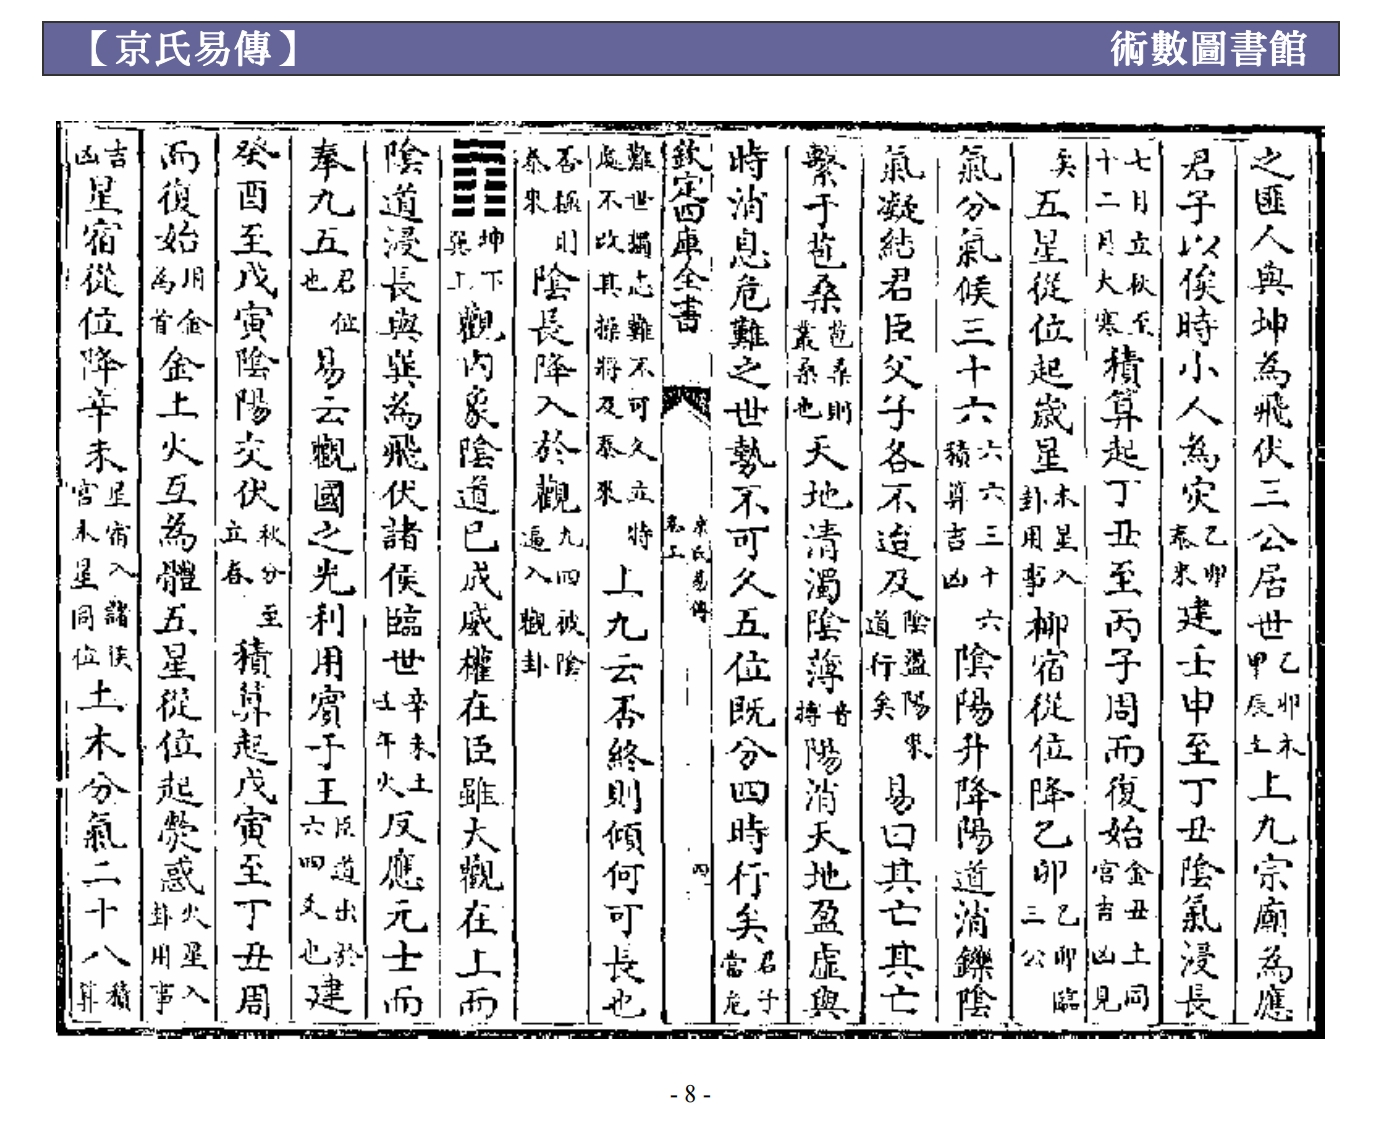 【京氏易傳】 術數圖書館
之匪人與坤為飛伏三公居世乙卯木甲辰土上九宗廟為應
君子以俟時小人為災乙卯泰來建壬申至丁丑陰氣浸長
七月立秋至十二月大寒積算起丁丑至丙子周而復始金丑土同宮吉凶見
矣五星從位起歲星木星入卦用事柳宿從位降乙卯乙卯臨三公
氣分氣候三十六六六三十六積算吉凶陰陽升降陽道消鑠陰
氣凝結君臣父子各不迨及陰盪陽來道行矣易曰其亡其亡
繫于苞桑苞桑則叢桑也天地清濁陰薄音摶陽消天地盈虛與
時消息危難之世勢不可久五位既分四時行矣君子當危
欽定四庫全書 京氏易傳卷上 四
難世獨志難不可久立特處不改其操將及泰來上九云否終則傾何可長也
否極則泰來陰長降入於觀九四被陰逼入觀卦
坤下巽上觀內象陰道已成威權在臣雖大觀在上而
陰道浸長與巽為飛伏諸侯臨世辛未土壬午火反應元士而
奉九五君位也易云觀國之光利用賓于王臣道出於六四爻也建
癸酉至戊寅陰陽交伏秋分至立春積算起戊寅至丁丑周
而復始用金為首金土火互為體五星從位起熒惑火星入卦用事
吉凶星宿從位降辛未星宿入諸侯宮未星同位土木分氣二十八積算
- 8 -